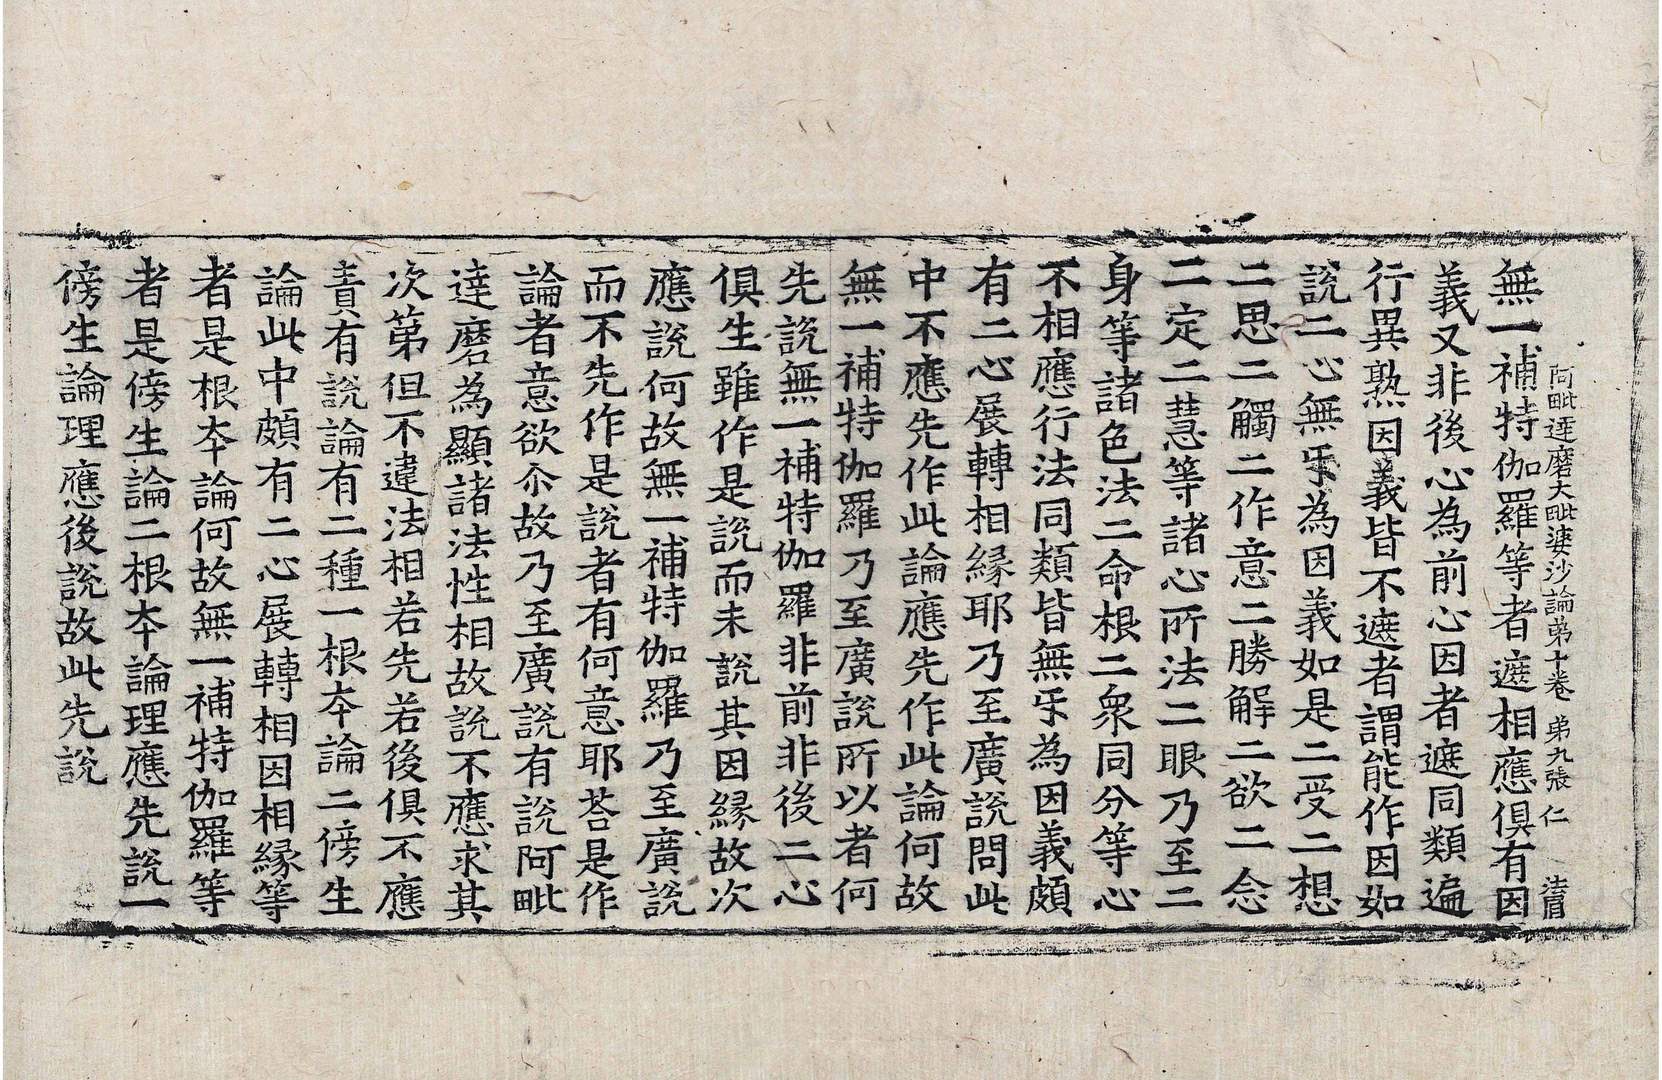 阿毗達磨大毗婆沙論苐十卷 苐九張 仁
無一補特伽羅等者遮相應俱有因
義又非後心為前心因者遮同類遍
行異熟因義皆不遮者謂能作因如
說二心無㸦為因義如是二受二想
二思二觸二作意二勝解二欲二念
二定二慧等諸心所法二眼乃至二
身等諸色法二命根二衆同分等心
不相應行法同類皆無㸦為因義頗
有二心展轉相緣耶乃至廣說問此
中不應先作此論應先作此論何故
無一補特伽羅乃至廣說所以者何
先說無一補特伽羅非前非後二心
俱生雖作是說而未說其因緣故次
應說何故無一補特伽羅乃至廣說
而不先作是說者有何意耶荅是作
論者意欲尒故乃至廣說有說阿毗
達磨為顯諸法性相故說不應求其
次第但不違法相若先若後俱不應
責有說論有二種一根夲論二傍生
論此中頗有二心展轉相因相緣等
者是根夲論何故無一補特伽羅等
者是傍生論二根夲論理應先說一
傍生論理應後說故此先說